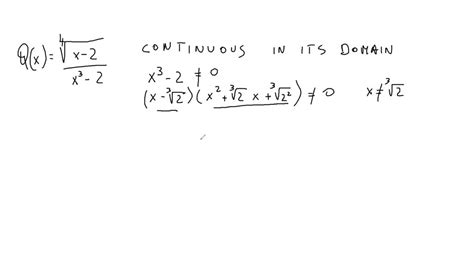 Q(x) = ∜(x-2) / (x³-2) CONTINUOUS IN ITS DOMAIN
x³-2 ≠ 0
(x-∛2)(x²+∛2 x+∛2²) ≠ 0 x≠∛2